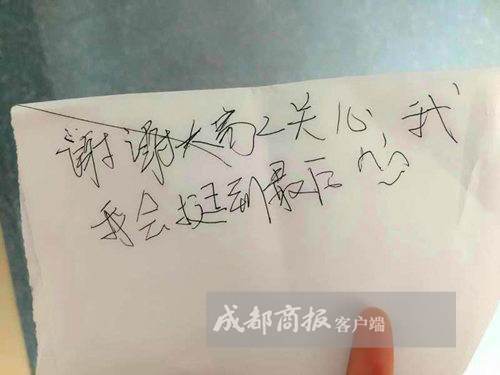 谢谢大 关心,我
我会挺到最后
成都商报客户端